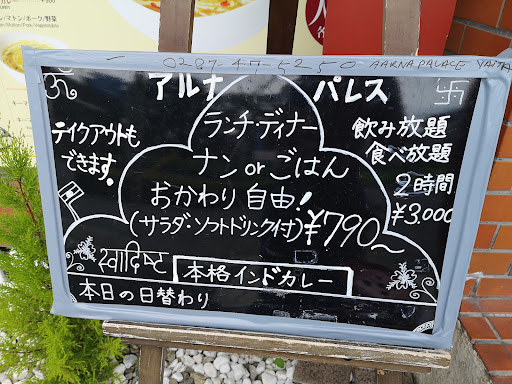 0287-47-5250 AARNA PALACE YAITA
ॐ アルナ パレス 卐
ランチ・ディナー
ナン or ごはん
おかわり自由!
(サラダ・ソフトドリンク付) ¥790~
テイクアウトも
できます。
飲み放題
食べ放題
2時間
¥3,000
स्वादिष्ट
本格インドカレー
本日の日替わり